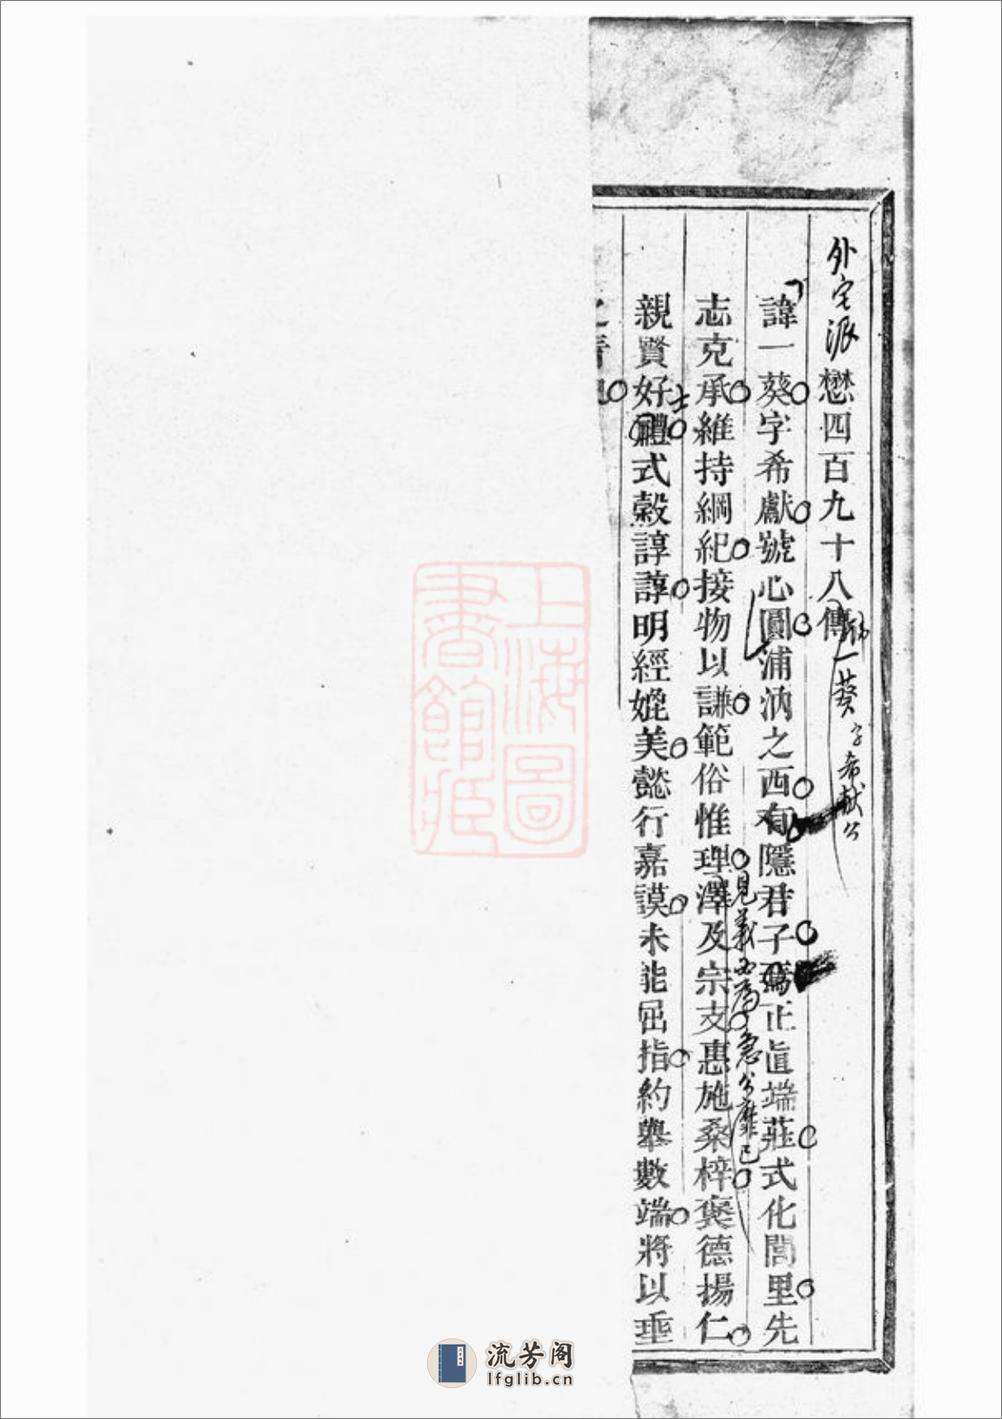 外宅派懋四百九十八傳
一葵字希献公
諱一葵字希獻號心圓浦汭之西有隱君子焉正直端莊式化閭里先
見義必為急公靡已
志克承維持綱紀接物以謙範俗惟理澤及宗支惠施桑梓褒德揚仁
士
親賢好禮式穀諄諄明經媲美懿行嘉謨未能屈指約舉數端將以垂
上海圖
書館藏
流芳阁
lfglib.cn